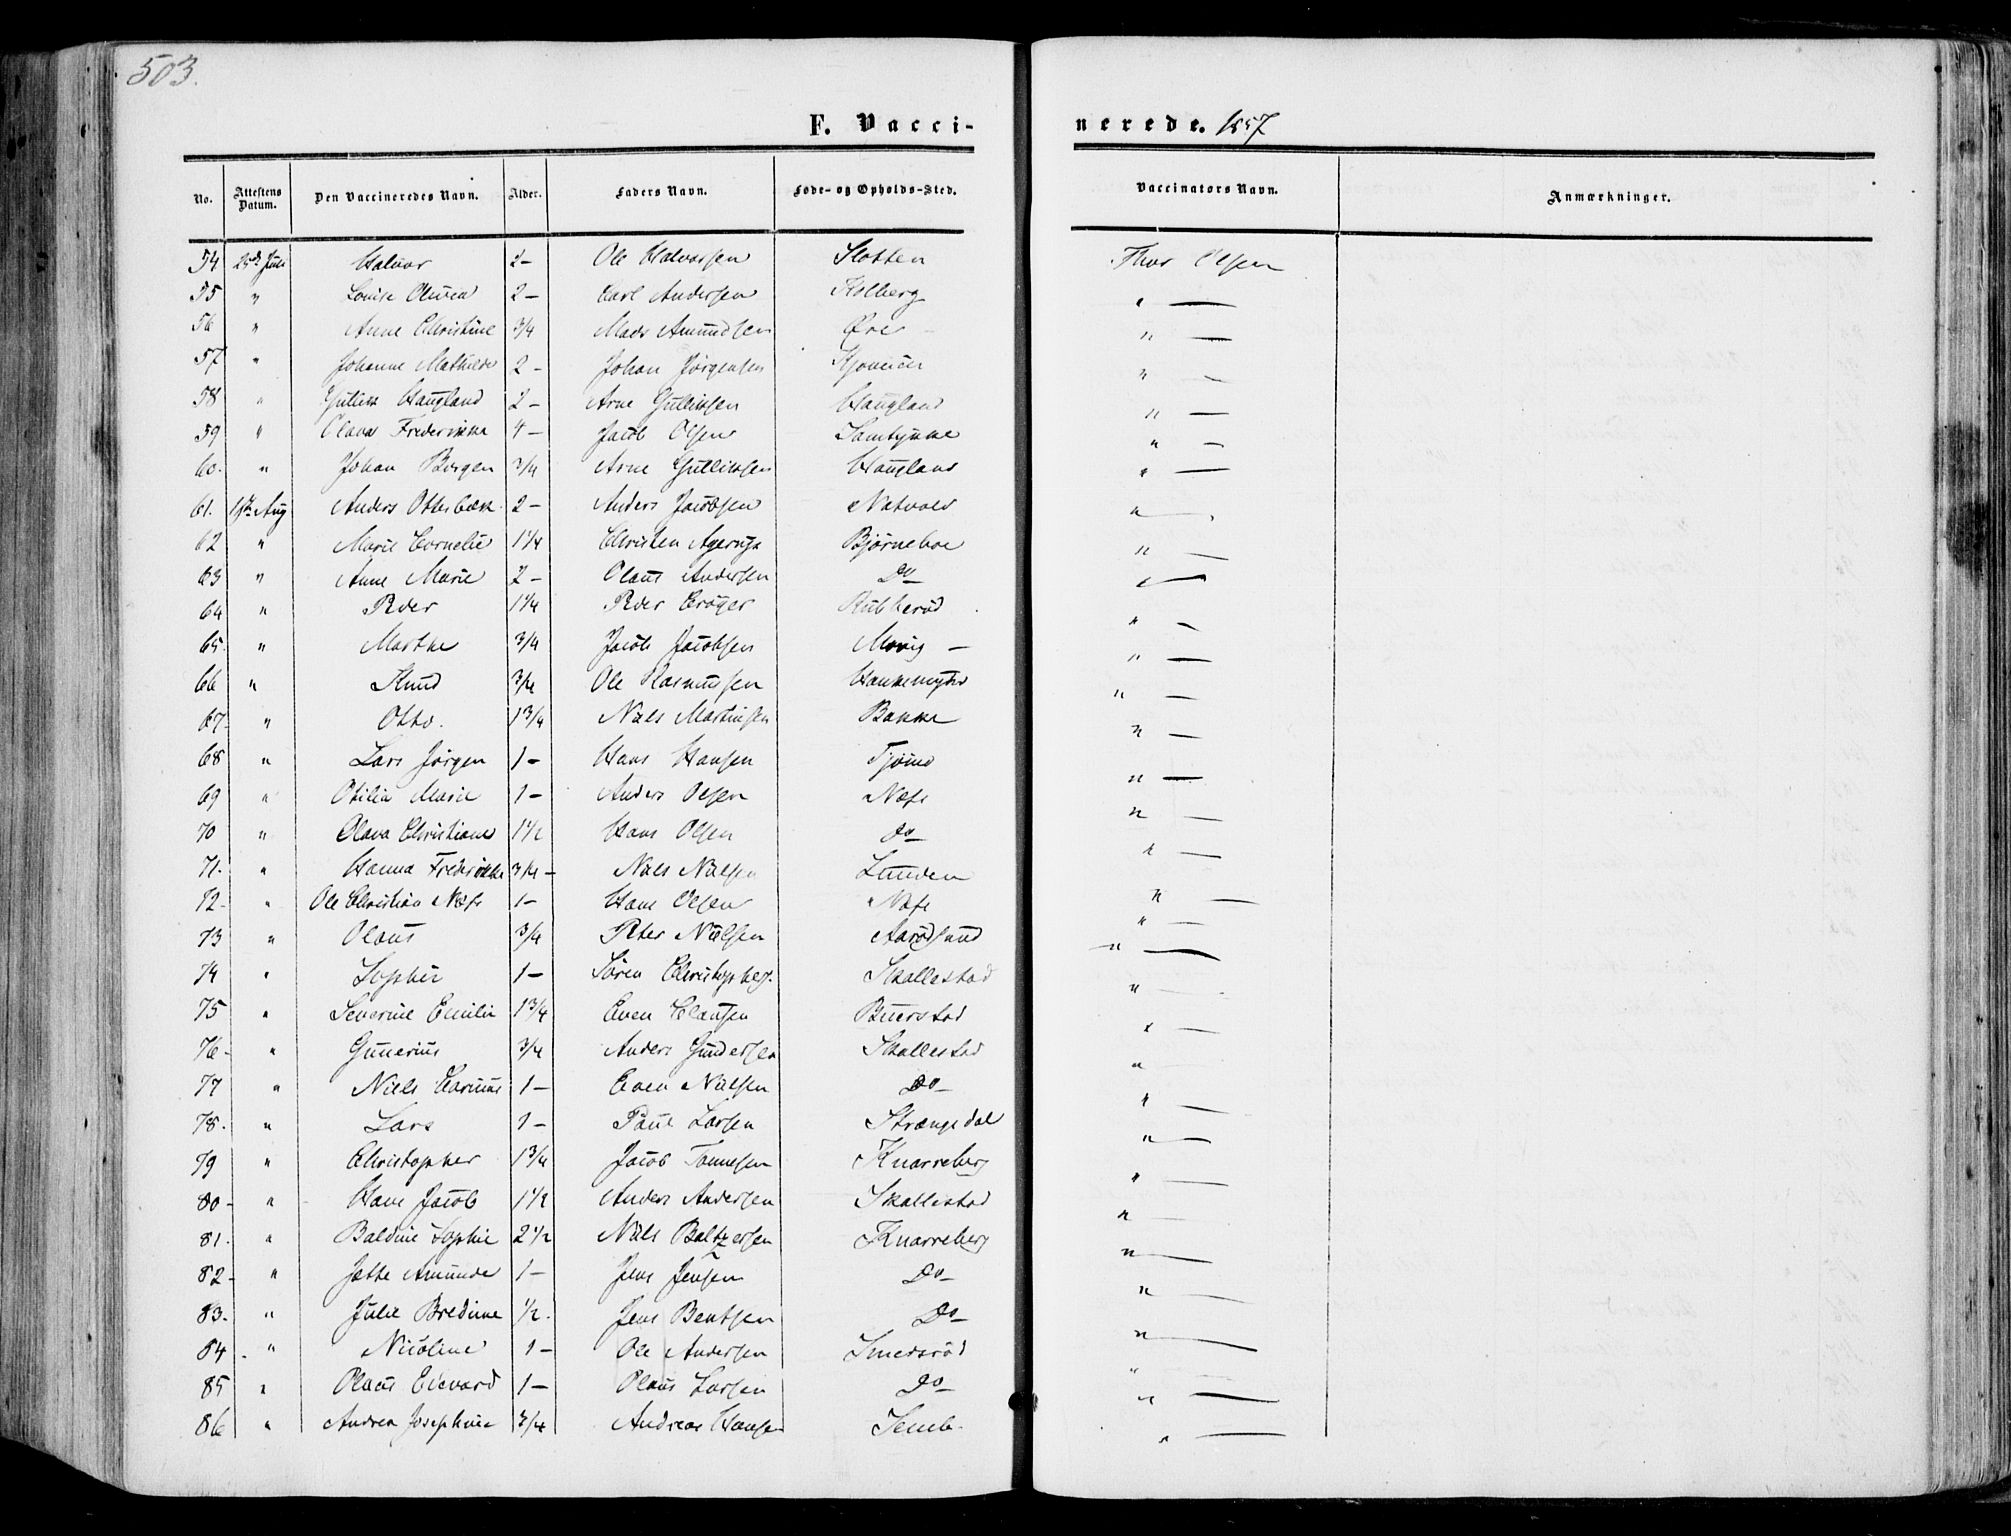 503.
F. Vacci-
nerede. 1857
No. Attestens Datum. Den Vaccineredes Navn. Alder. Faders Navn. Føde- og Opholds-Sted. Vaccinators Navn. Anmærkninger.
54 Juli Halvor 2- Ole Halvorsen Slotten Thor Olsen
55 " Louise Olivea 2- Carl Andersen Holberg " —
56 " Anne Christine 3/4 Mads Amundsen Øre " —
57 " Johanne Mathilde 2- Johan Jørgensen " —
58 " Gullik Haugland 2- Arne Gulliksen Haugland " —
59 " Olava Frederikke 4- Jacob Olsen " —
60. " Johan Borgen 3/4 Arne Gulliksen Haugland " —
61. Aug Anders Otterbæk 2- Anders Jacobsen Natvold " —
62 " Marie Cornelie 1 1/4 Christen Bjørneboe " —
63 " Anne Marie 2- Olaus Andersen Do " —
64 " Peder 1 1/4 Peder Crøger Rubberød " —
65. " Marthe 3/4 Jacob Jacobsen — " —
66 " Knud 3/4 Ole Rasmussen " —
67- " Otto. 1 3/4 Niels Martinsen Bakke " —
68 " Lars Jørgen 1- Hans Hansen Tjømø " —
69 " Otilia Marie 1- Anders Olsen Næs " —
70 " Olava Christiane 1 1/2 Hans Olsen do " —
71. " Hanna Frederikke 3/4- Niels Nielsen Lunden " —
72- " Ole Christian Næss 1- Hans Olsen Næs " —
73 " Olaus 3/4 Peter Nielsen Aarødsund " —
74 " Sophie 1- Søren Christophers. Skallestad " —
75 " Severine Emilie 1 3/4 Even Clausen Buerstad " —
76- " Gunerius 3/4 Anders Gundersen Skallestad " —
77 " Niels Carinus 1- Even Nielsen Do " —
78. " Lars 1- Paul Larsen Strængsdal " —
79 " Christopher 1 3/4 Jacob Tønnesen Knarreberg " —
80- " Hans Jacob 1 1/2 Anders Andersen Skallestad " —
81. " Baldine Sophie 2 1/2 Niels Baltzersen Knarreberg " —
82- " Jette Amunda 1- Jens Jensen Do " —
83. " Julie Bredine 1/2. Jens Bentsen Do " —
84. " Nicoline 1- Ole Andersen Smedsrød " —
85 " Olaus Edevard 1- Olaus Larsen Do " —
86 " Andrea Josephine 3/4 Andreas Hansen Semb. " —